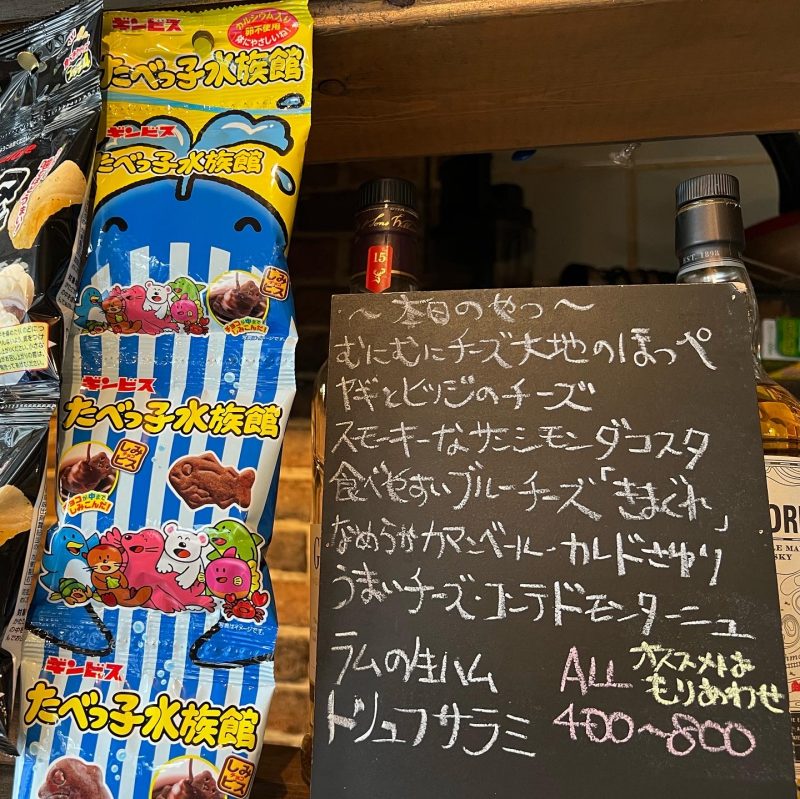 ギンビス
カルシウム入り
卵不使用
たべっ子水族館
ギンビス
たべっ子水族館
しみチョコビス
チョコが中まで
しみこんだ!
ギンビス
たべっ子水族館
しみチョコビス
チョコが中まで
しみこんだ!
ギンビス
たべっ子水族館
しみチョコビス
15
EST. 1893
〜本日のやつ〜
むにむにチーズ大地のほっぺ
ヤギとヒツジのチーズ
スモーキーなサンシモンダコスタ
食べやすいブルーチーズ「きまぐれ」
なめらかカマンベール・カルドさゆり
うまいチーズ・コンテドモンターニュ
ラムの生ハム
トリュフサラミ
ALL
400〜800
オススメは
もりあわせ